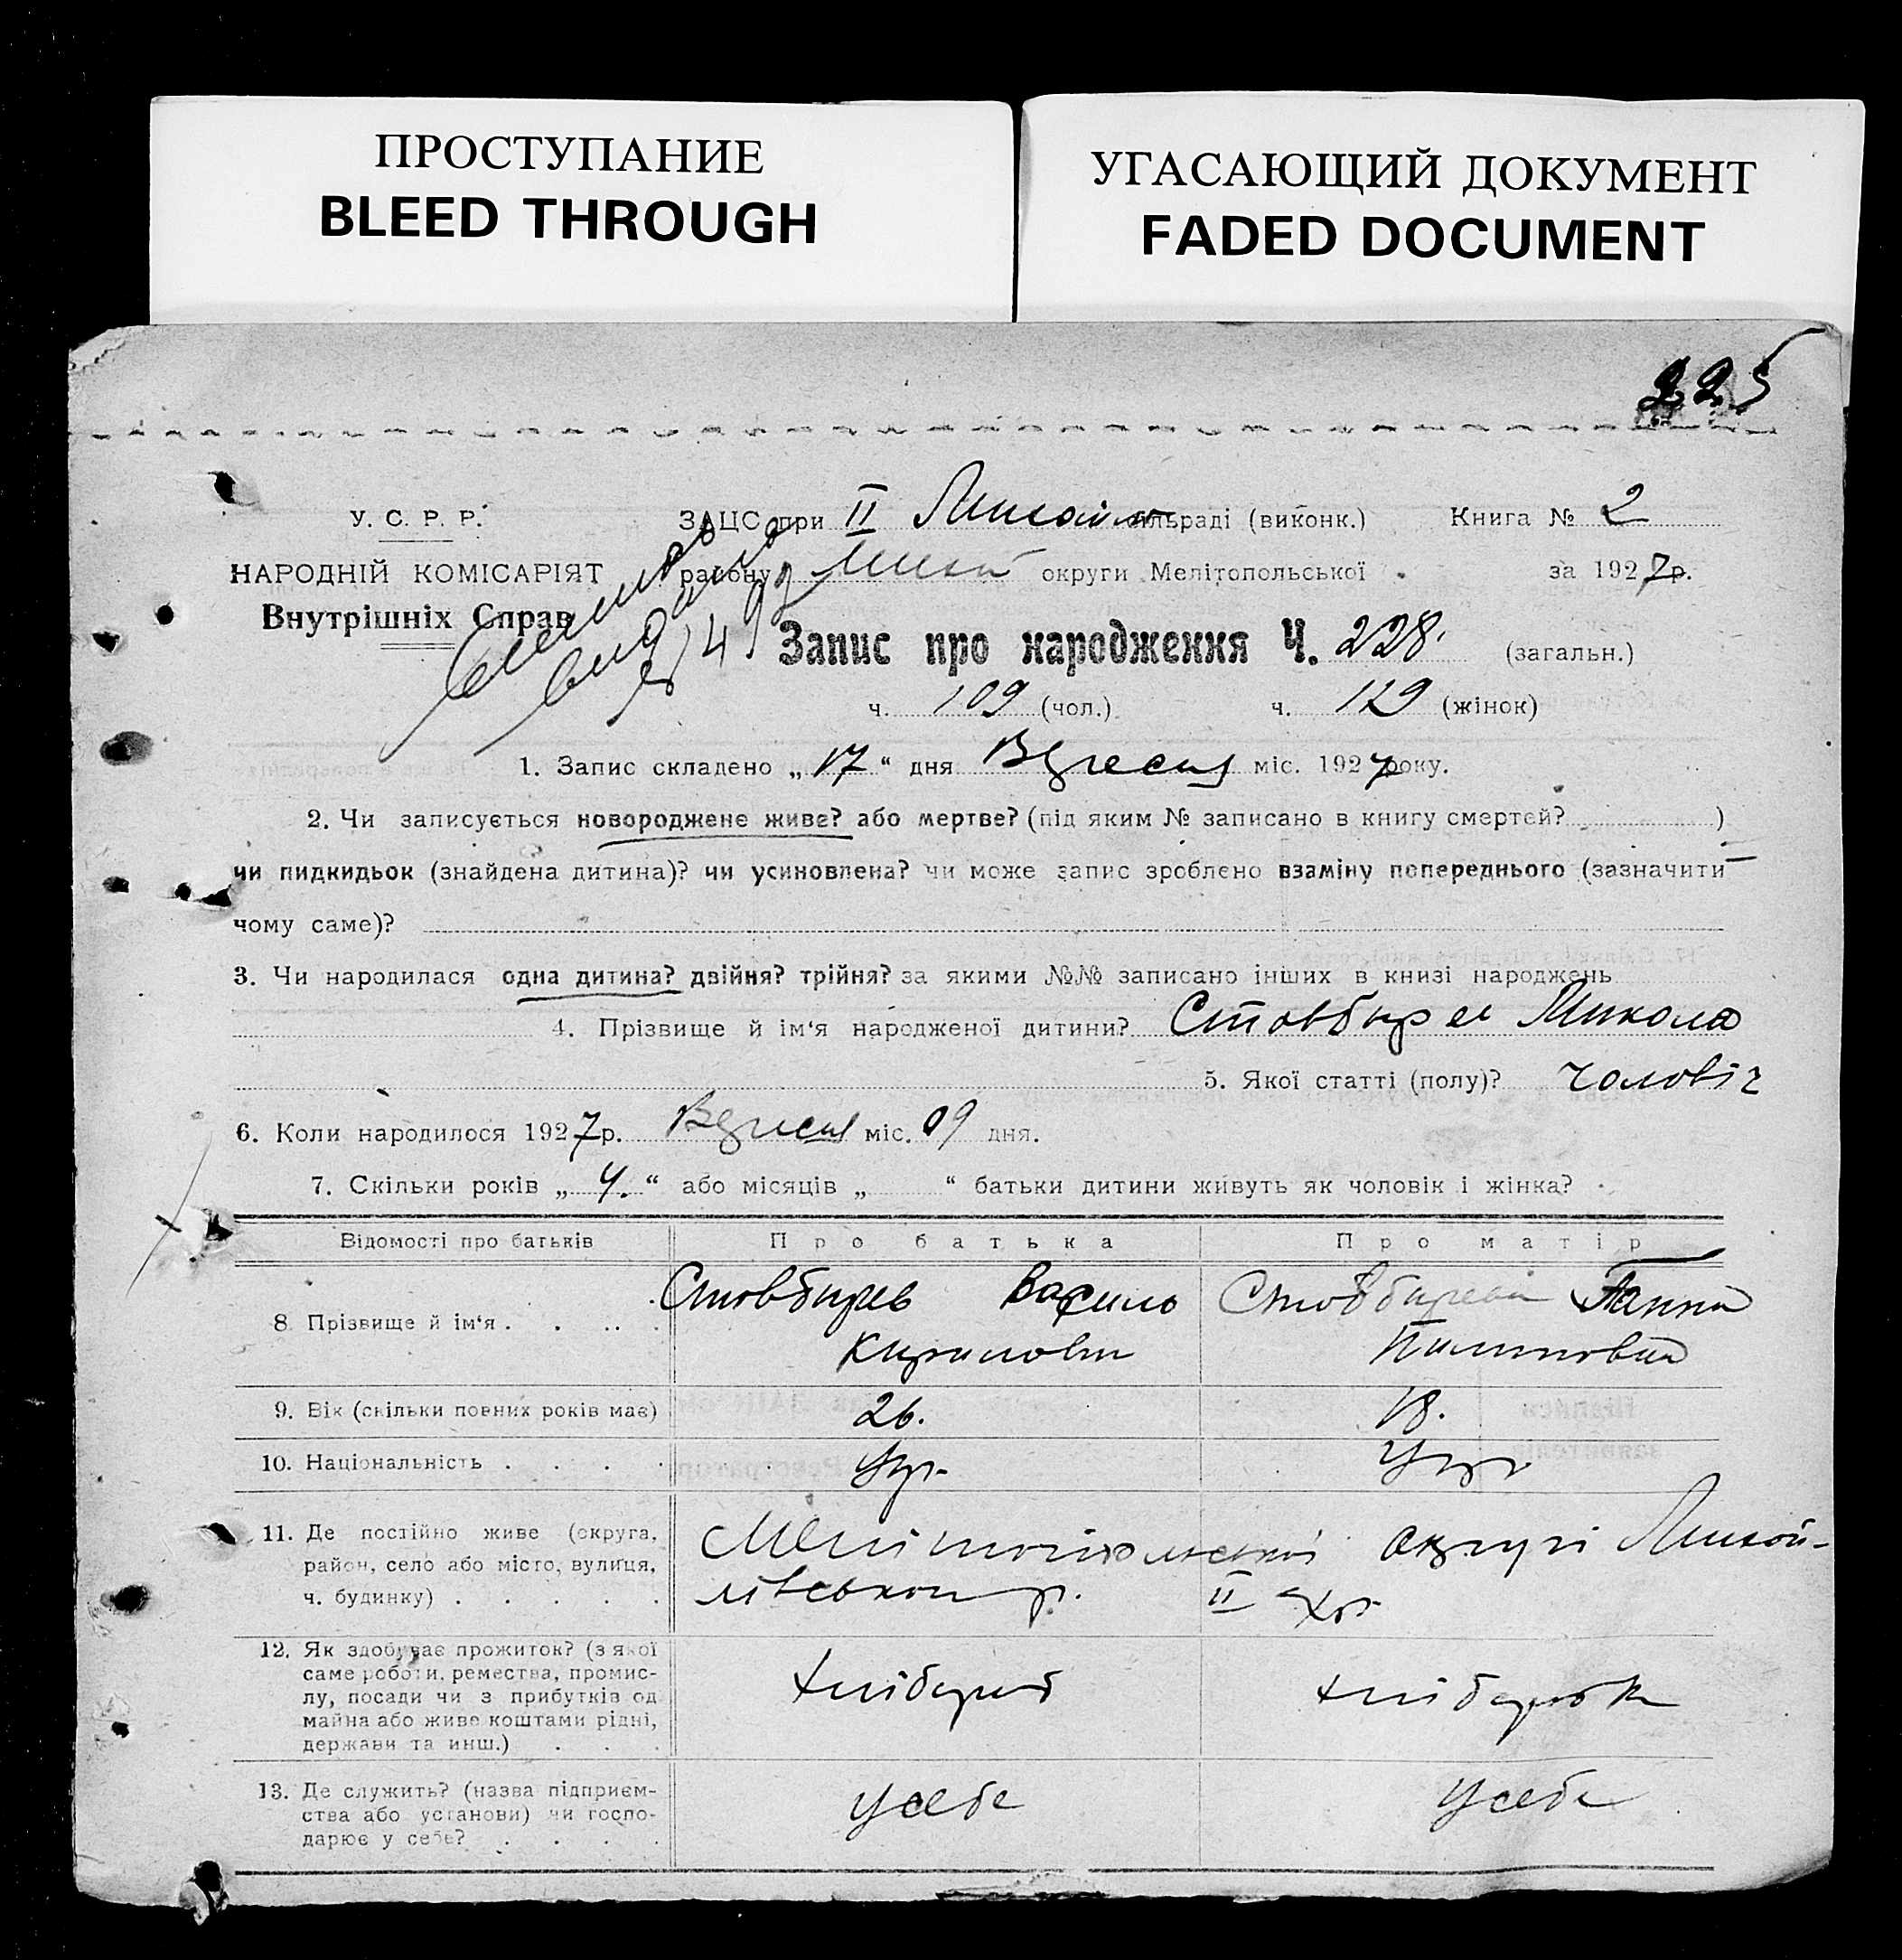 ПРОСТУПАНИЕ
BLEED THROUGH
УГАСАЮЩИЙ ДОКУМЕНТ
FADED DOCUMENT
225
У. С. Р. Р.
НАРОДНІЙ КОМІСАРІЯТ
Внутрішніх Справ
ЗАЦС при II сільраді (виконк.) Книга № 2
району округи Мелітопольської за 1927 р.
Запис про народження Ч. 228. (загальн.)
ч. 109 (чол.) ч. 119 (жінок)
1. Запис складено „17“ дня Вересня міс. 1927 року.
2. Чи записується новороджене живе? або мертве? (під яким № записано в книгу смертей? )
чи пидкидьок (знайдена дитина)? чи усиновлена? чи може запис зроблено взаміну попереднього (зазначити
чому саме)?
3. Чи народилася одна дитина? двійня? трійня? за якими №№ записано інших в книзі народжень
4. Прізвище й ім‘я народженої дитини? Стовбирев Микола
5. Якої статті (полу)? чоловіч
6. Коли народилося 1927 р. Вересня міс. 09 дня.
7. Скільки років „4.“ або місяців „ “ батьки дитини живуть як чоловік і жінка?
Відомості про батьків Про батька Про матір
8 Прізвище й ім‘я . Стовбирев Василь Стовбирева Ганна
Кирилович Пилиповна
9. Вік (скільки повних років має) 26. 18.
10. Національність . Укр. Укр
11. Де постійно живе (округа, Мелітопольської округи Михай-
район, село або місто, вулиця, лівського р. II
ч. будинку) .
12. Як здобуває прожиток? (з якої
саме роботи, ремества, промис-
лу, посади чи з прибутків од хлібороб хлібороб
майна або живе коштами рідні,
держави та инш.)
13. Де служить? (назва підприєм-
ства або установи) чи госпо- у себе у себе
дарює у себе?